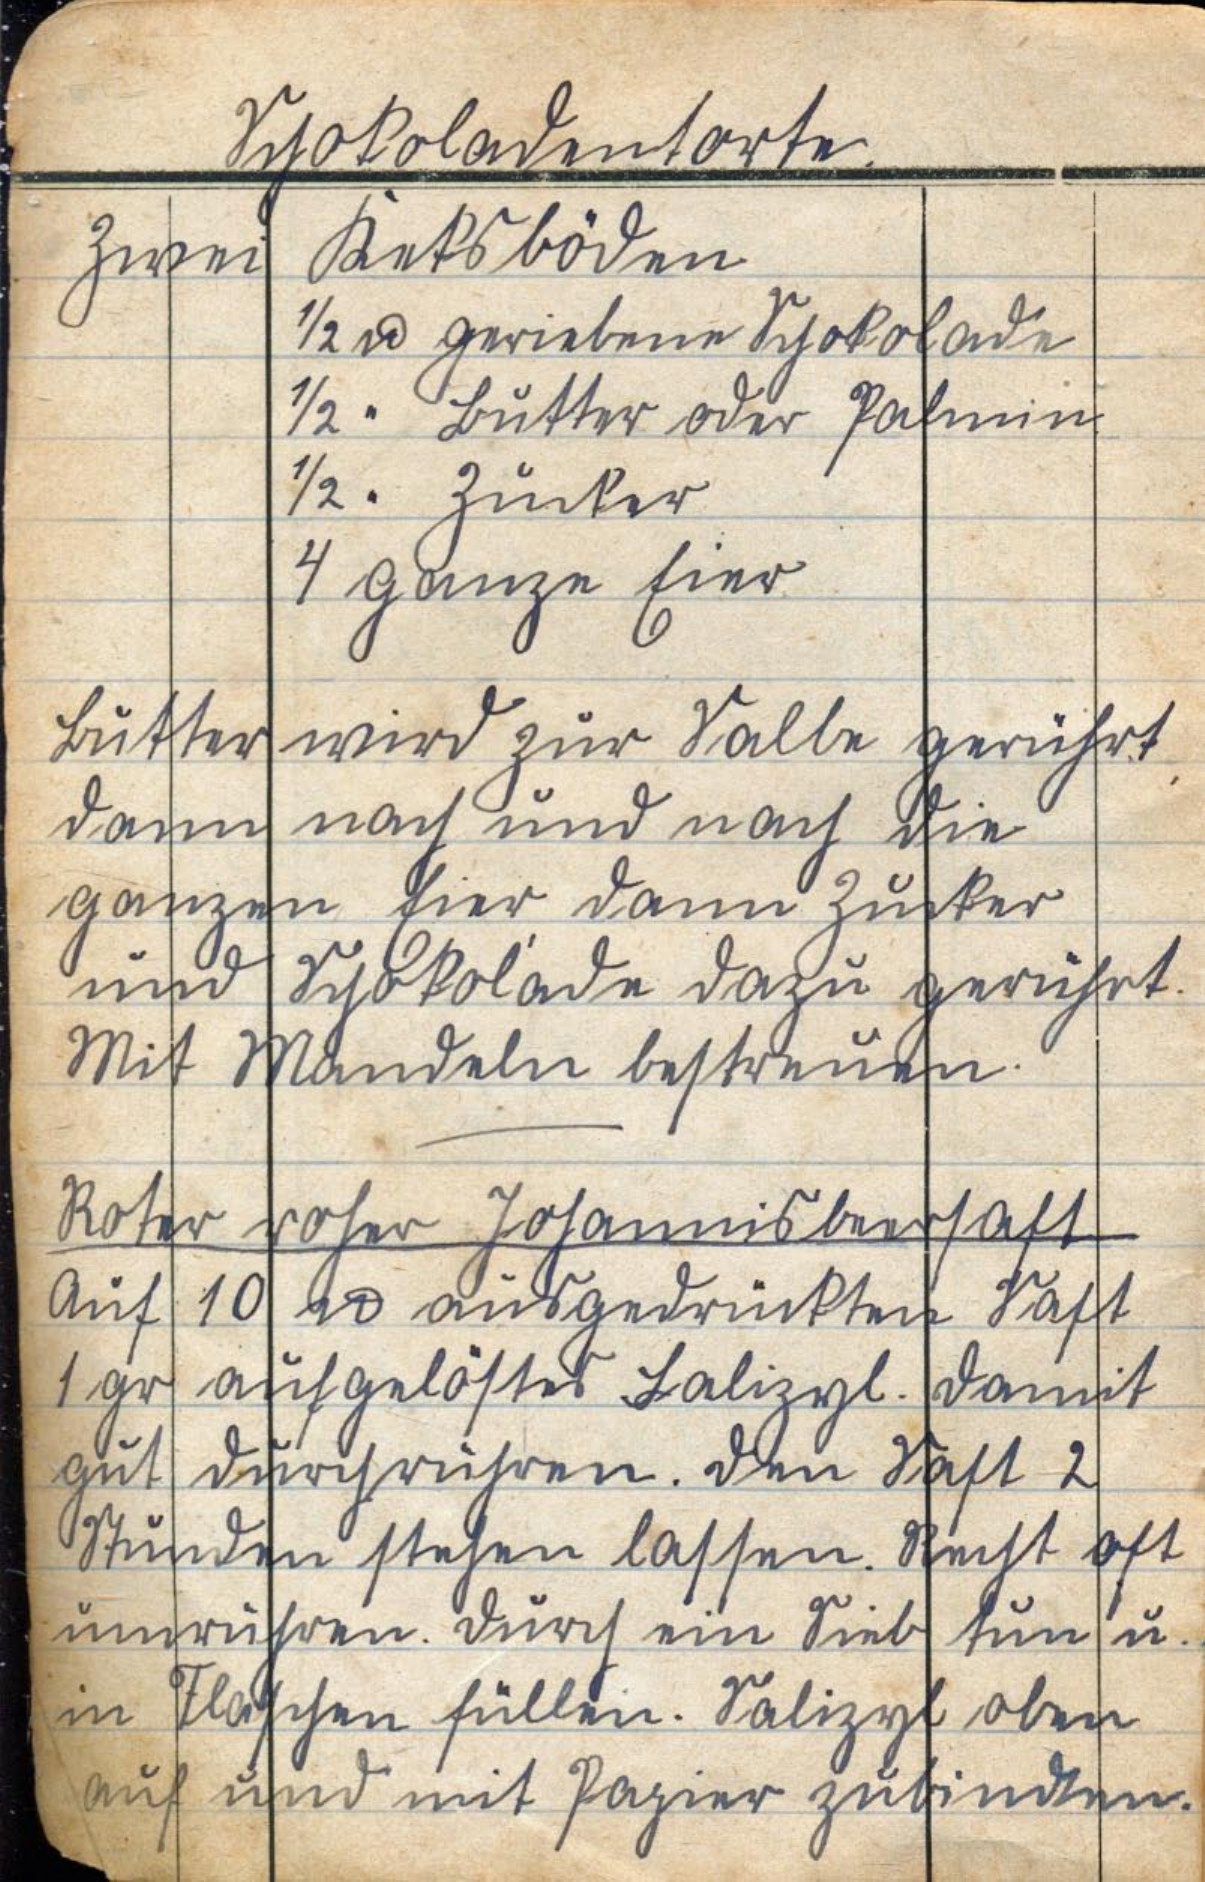 Schokoladentorte.
Zwei Keksböden
1/2 ℔ geriebene Schokolade
1/2 " Butter oder Palmin
1/2 " Zucker
4 ganze Eier
Butter wird zur Salbe gerührt
dann nach und nach die
ganzen Eier, dann Zucker
und Schokolade dazu gerührt.
Mit Mandeln bestreuen.
Roter roher Johannisbeersaft
Auf 10 ℔ ausgedrückten Saft
1 gr aufgelöstes Salizyl. Damit
gut durchrühren. Den Saft 2
Stunden stehen lassen. Recht oft
umrühren. Durch ein Sieb tun u.
in Flaschen füllen. Salizyl oben
auf und mit Papier zubinden.